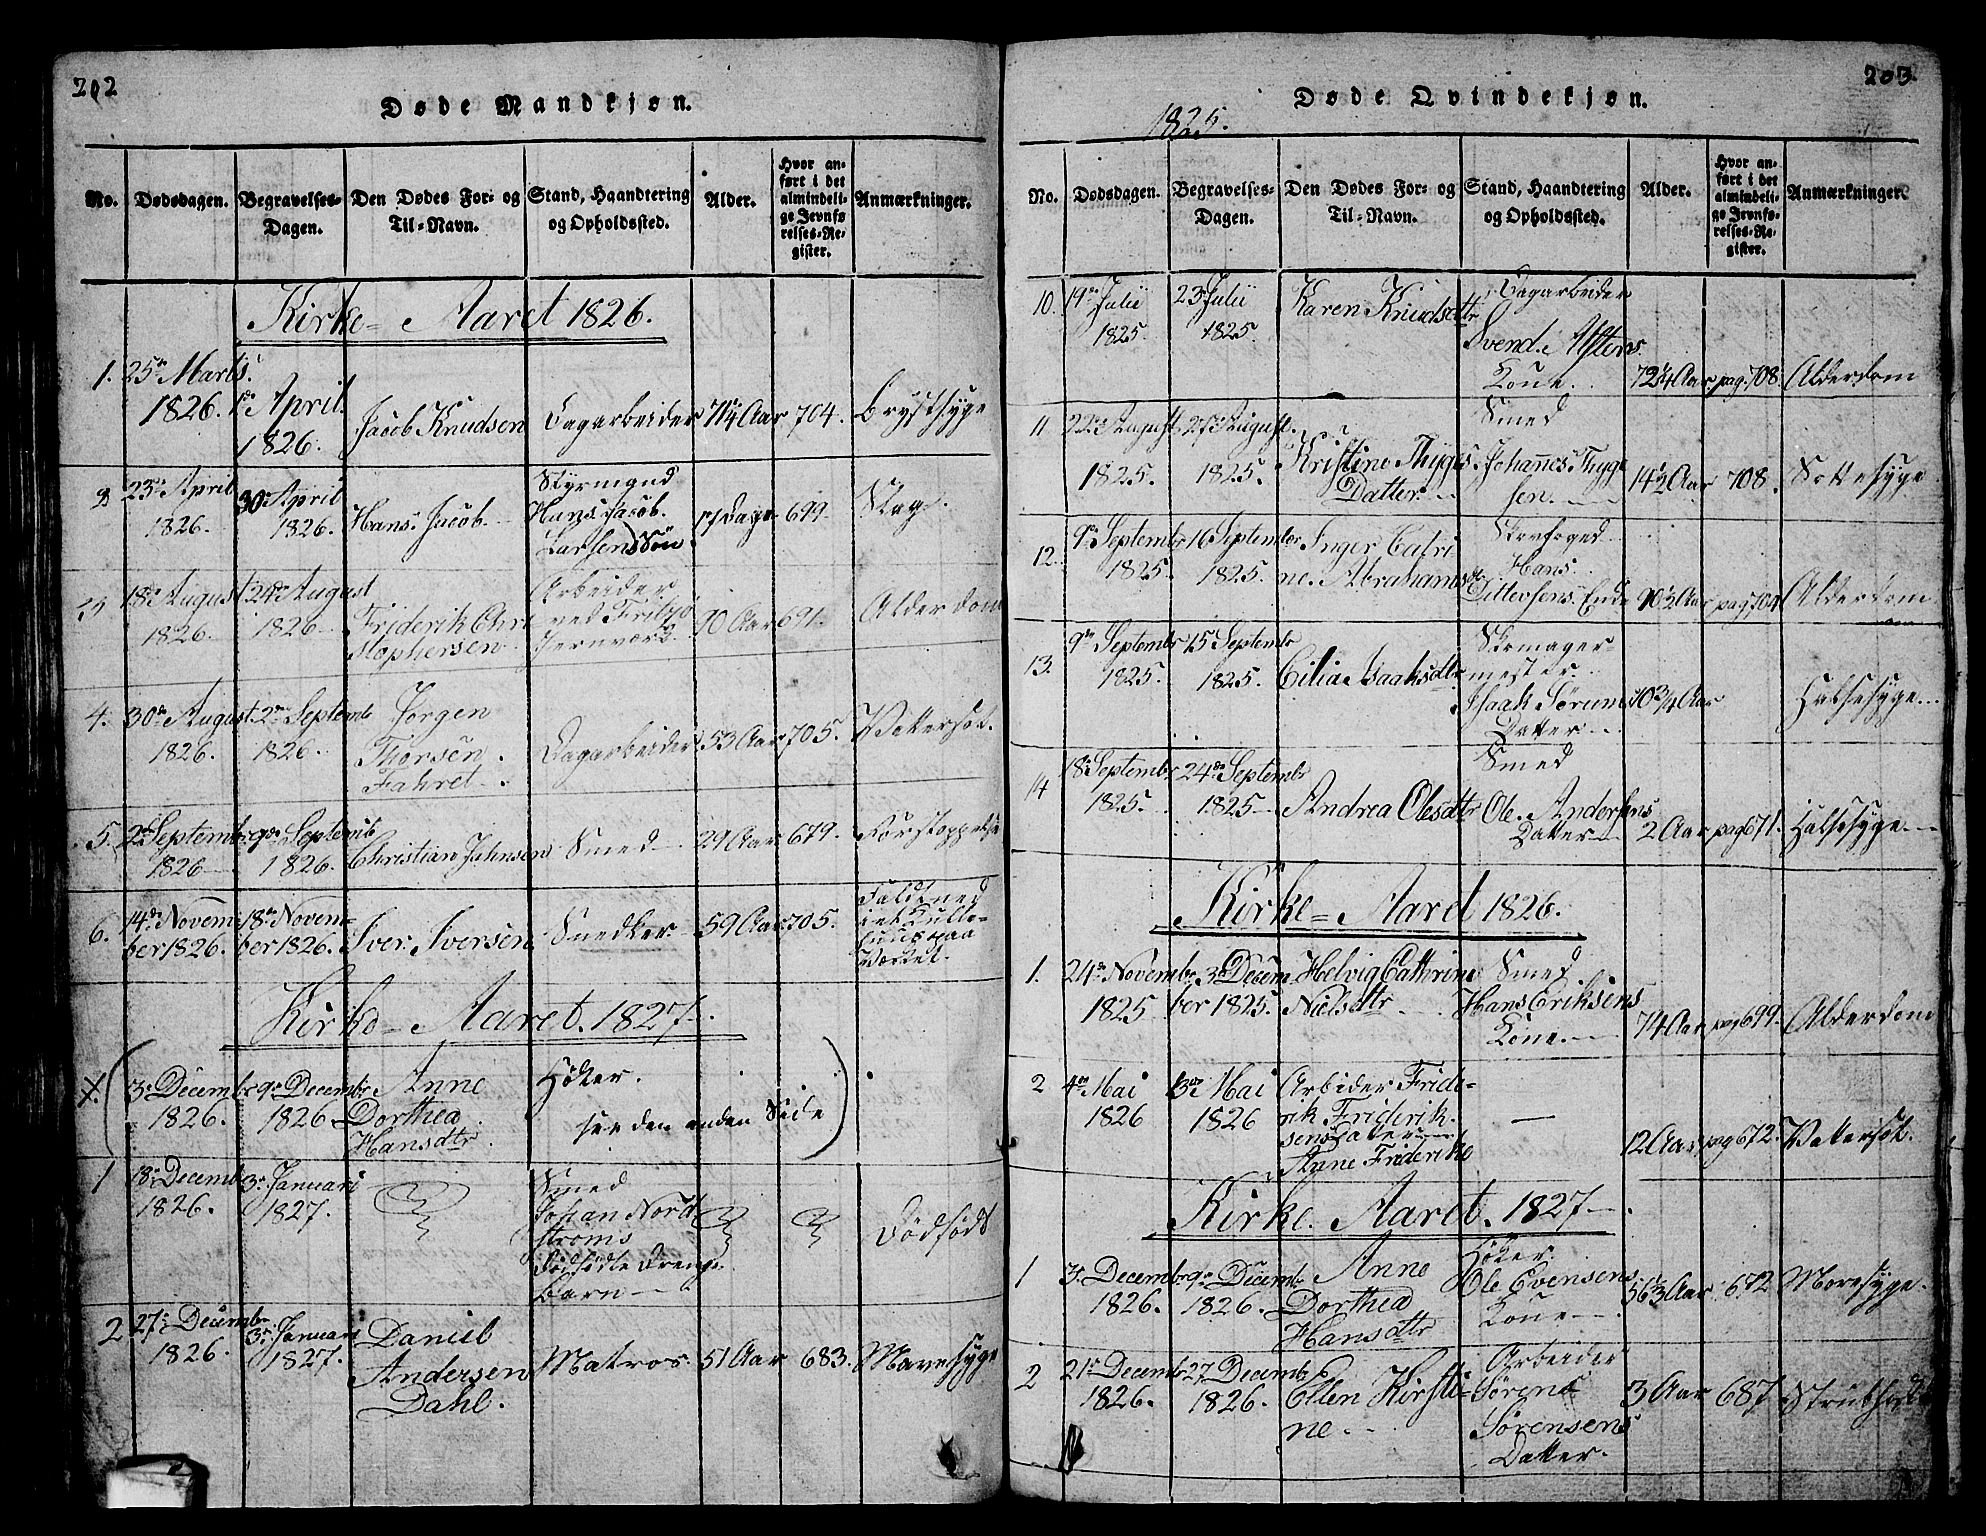 202
Døde Mandkjøn.
No.
Dødsdagen.
Begravelses-Dagen.
Den Dødes For- og Til-Navn.
Stand, Haandtering og Opholdssted.
Alder.
Hvor anført i det almindelige Jevnførelses-Register.
Anmærkninger.
Kirke-Aaret 1826.
1. 25de Martis 1826. 1de April 1826. Jacob Knudsen Dagarbeider 71¼ Aar 704. Brystsyge
23de April 1826. 30de April 1826. Hans Jacob Styrmand Hans Jacob Larsens Søn. 17 Dage 699 Slag.
18de August 1826. 24de August 1826 Friderik Christophersen Arbeider ved Fritzø Jernværk. 90 Aar 691. Alderdom
4. 30de August 1826. 2den Septemb 1826. Jørgen Thorsen Fahret. Dagarbeider 53 Aar 705. Vattersot.
5. 2den Septembr 1826 9de Septemb 1826. Christian Jahnsen Smed 29 Aar 679. Forstoppelse
6. 14de November 1826. 18de November 1826. Iver Iversen Snedker 59 Aar 705. Faldt ned i et Kulle-Huus paa Værket.
Kirke-Aaret. 1827.
3de Decembr 1826. 9de Decembr 1826 Anne Dorthea Hansdtr. Høker. see den anden Side
1 18de Decembr 1826. 3de Januari 1827. Smed Johan Nordstrøms Dødfødte Drenge Barn Dødfødt
2 27de Decembr 1826. 3de Januari 1827. Daniel Andersen Dahl. Matros. 51 Aar 683. Mavesyge
203
Døde Qvindekjøn.
1825.
No.
Dødsdagen.
Begravelses-Dagen.
Den Dødes For- og Til-Navn.
Stand, Haandtering og Opholdssted.
Alder.
Hvor anført i det almindelige Jevnførelses-Register.
Anmærkninger.
10. 19de Julii 1825. 23de Julii 1825. Karen Knudsdtr Dagarbeider Svend Kone. 72¼ Aar pag. 708. Alderdom
11 22de August 1825. 27de August. 1825. Kristine Thyges Datter Smed Johannes Thygesen 14½ Aar 708. Sottesyge
12. 9de Septembr 1825. 16 September 1825. Inger Catrine Abrahamsdtr Hans Dittersens Enke 90½ Aar pag. 704 Alderdom
13. 9de Septembr 1825. 15 Septembr 1825. Cilia Isaaksdtr Skomagermester Isaak Sørums Datter 10¾ Aar Halsesyge
14 18de Septembr 1825. 24de Septembr 1825 Andrea Olesdtr Smed Ole Andersens Datter 2 Aar pag 671. Halsesyge
Kirke-Aaret 1826.
1. 24de November 1825 3de December 1825. Helvig Cathrine Nielsdtr Smed Hans Eriksens Kone. 74 Aar pag 699. Alderdom
2 4de Mai 1826 13de Mai 1826 Arbider Friderik Frideriksens Dater Anne Friderike — 12 Aar pag 672. Vattersot.
Kirke. Aaret. 1827.
1 3de Decembr 1826. 9de Decembr 1826. Anne Dorthea Hansdtr Høker Ole Evensens Kone 56½ Aar 672 Movesyge
2 21de Decembr 1826. 27 Decembr 1826. Ellen Kirstine Arbeider Sørens Sørensens Datter. 3 Aar 687